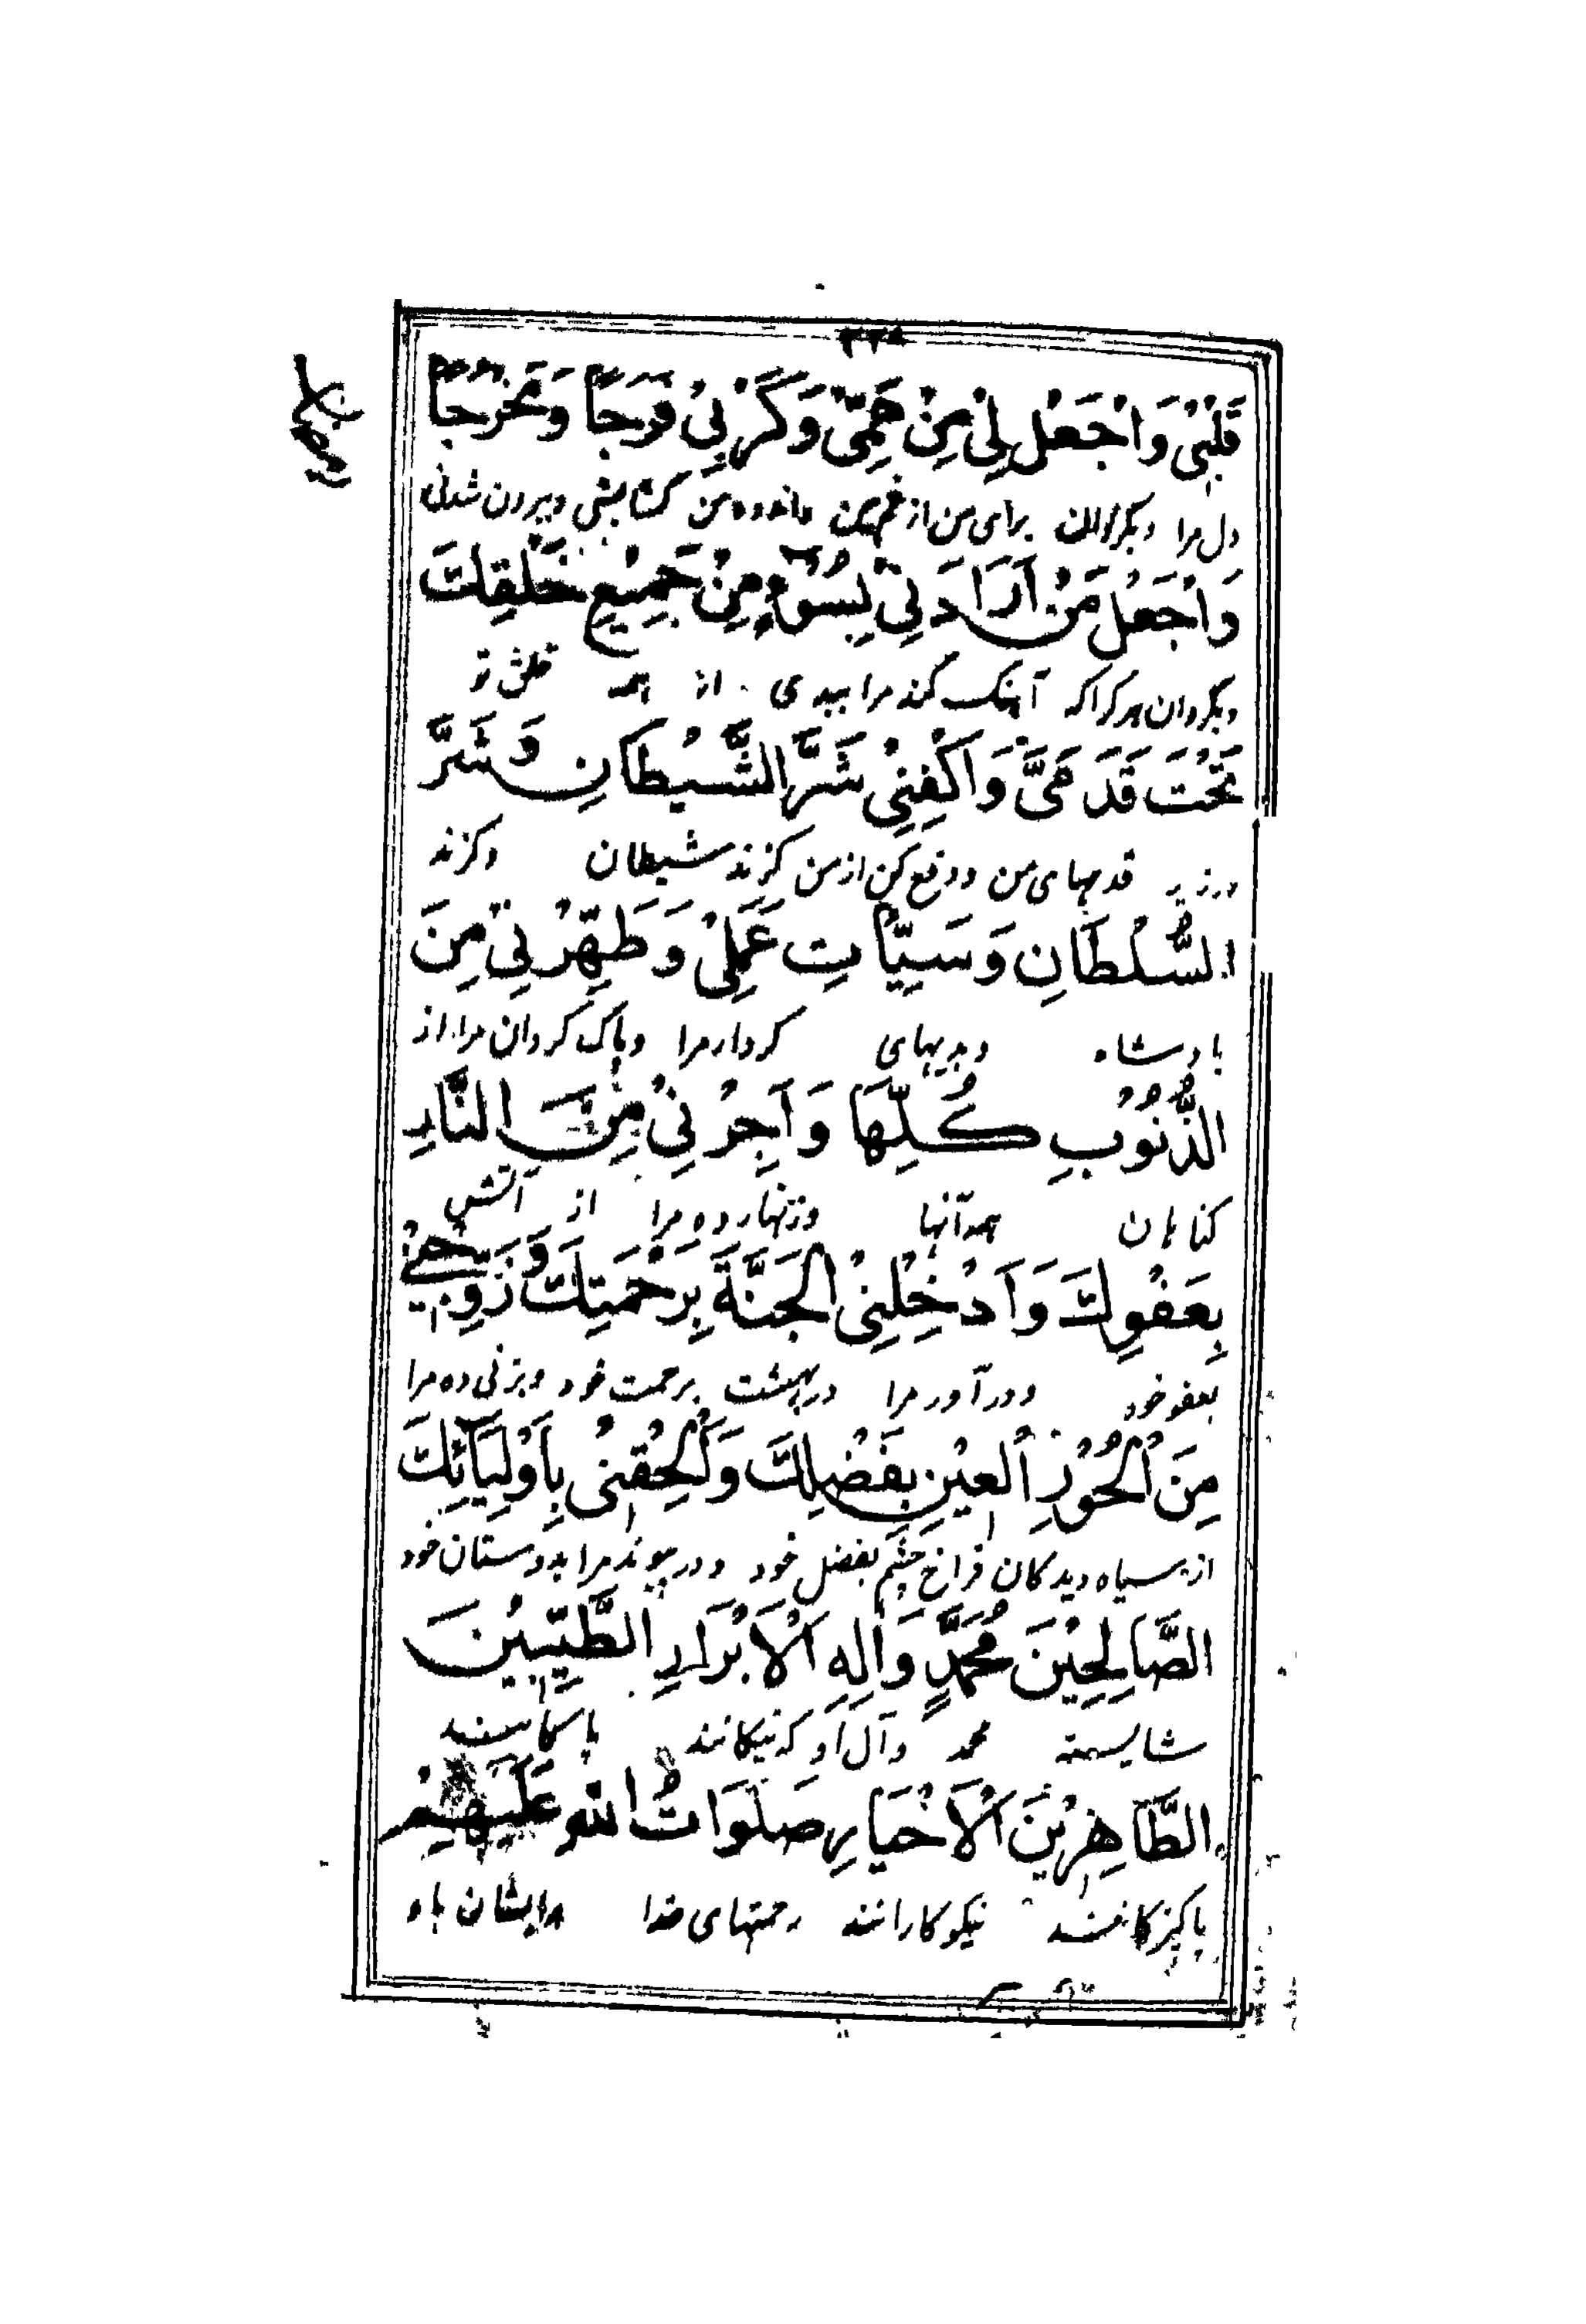 ۳۲۸
قَلْبِیْ وَاجْعَلْ لِیْ مِنْ هَمِّیْ وَکَرْبِیْ فَرَجًا وَمَخْرَجًا
دل مرا وبگردان برای من از غم من واندوه من کشایشی وبیرون شدنی
وَاجْعَلْ مَنْ اَرَادَنِیْ بِسُوْٓءٍ مِنْ جَمِیْعِ خَلْقِکَ
وبگردان هرکرا که آهنگ کند مرا ببدی از همه خلق تو
تَحْتَ قَدَمَیَّ وَاکْفِنِیْ شَرَّ الشَّیْطَانِ وَشَرَّ
درزیر قدمهای من ودفع کن از من گزند شیطان وگزند
السُّلْطَانِ وَسَیِّاٰتِ عَمَلِیْ وَطَهِّرْنِیْ مِنَ
بادشاه وبدیهای کردار مرا وپاک گردان مرا از
الذُّنُوْبِ کُلِّهَا وَاَجِرْنِیْ مِنَ النَّارِ
کناهان همه آنها وزنهار ده مرا از آتش
بِعَفْوِکَ وَاَدْخِلْنِیْ الْجَنَّةَ بِرَحْمَتِکَ وَزَوِّجْنِیْ
بعفو خود ودرآور مرا دربهشت برحمت خود وبزنی ده مرا
مِنَ الْحُوْرِ الْعِیْنِ بِفَضْلِکَ وَاَلْحِقْنِیْ بِاَوْلِیَآئِکَ
از سیاه دیدگان فراخ چشم بفضل خود ودرپیوند مرا بدوستان خود
الصَّالِحِیْنَ مُحَمَّدٍ وَاٰلِهِ الْاَبْرَارِ الطَّیِّبِیْنَ
شایسته محمد وآل او که نیکانند پاکانند
الطَّاهِرِیْنَ الْاَخْیَارِ صَلَوَاتُ اللهِ عَلَیْهِمْ
پاکیزگانند نیکوکارانند رحمتهای خدا برایشان باد